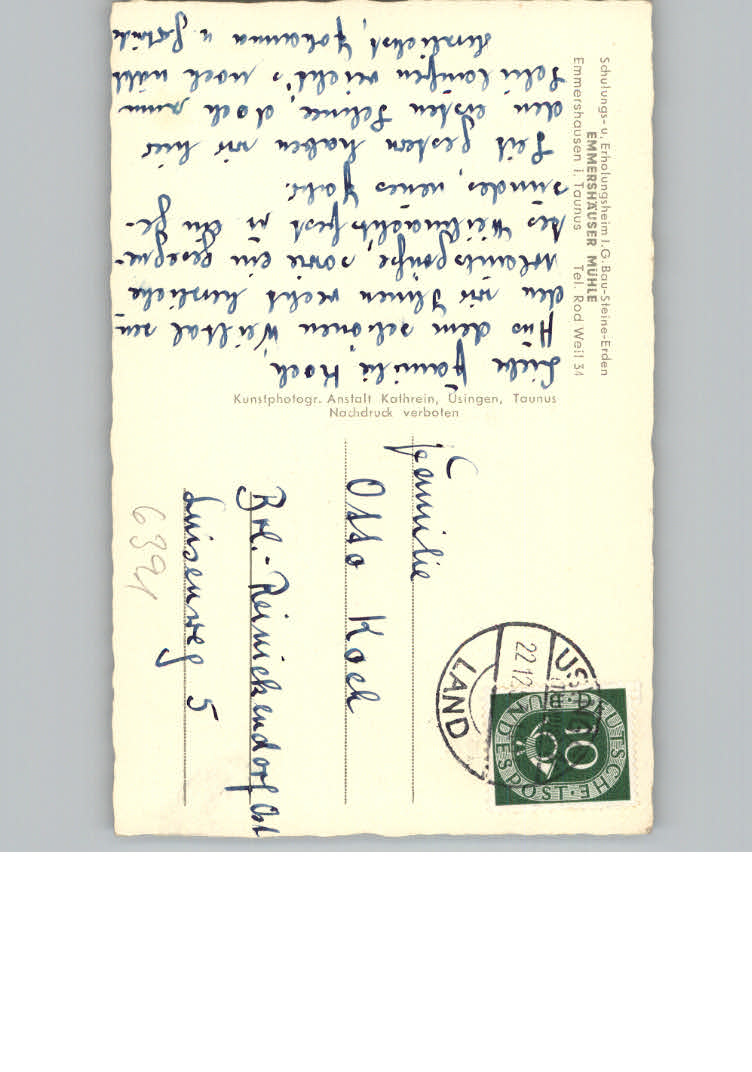 Schulungs- u. Erholungsheim I.G. Bau-Steine-Erden
EMMERSHÄUSER MÜHLE
Emmershausen i. Taunus Tel. Rod Weil 34
Liebe Familie Koch,
Aus dem schönen Weiltal sen-
den wir Ihnen recht herzliche
Urlaubsgrüße, sowie ein gesegne-
tes Weihnachtsfest u. ein ge-
sundes, neues Jahr.
Seit gestern haben wir hier
den ersten Schnee, doch zum
Schi laufen reicht's noch nicht
Herzlichst, Johanna u.
Kunstphotogr. Anstalt Kathrein, Usingen, Taunus
Nachdruck verboten
Familie
Otto Koch
Brl.-Reinickendorf Ost
Luisenweg 5
639
US
22.12.
LAND
DEUTSCHE BUNDESPOST
10